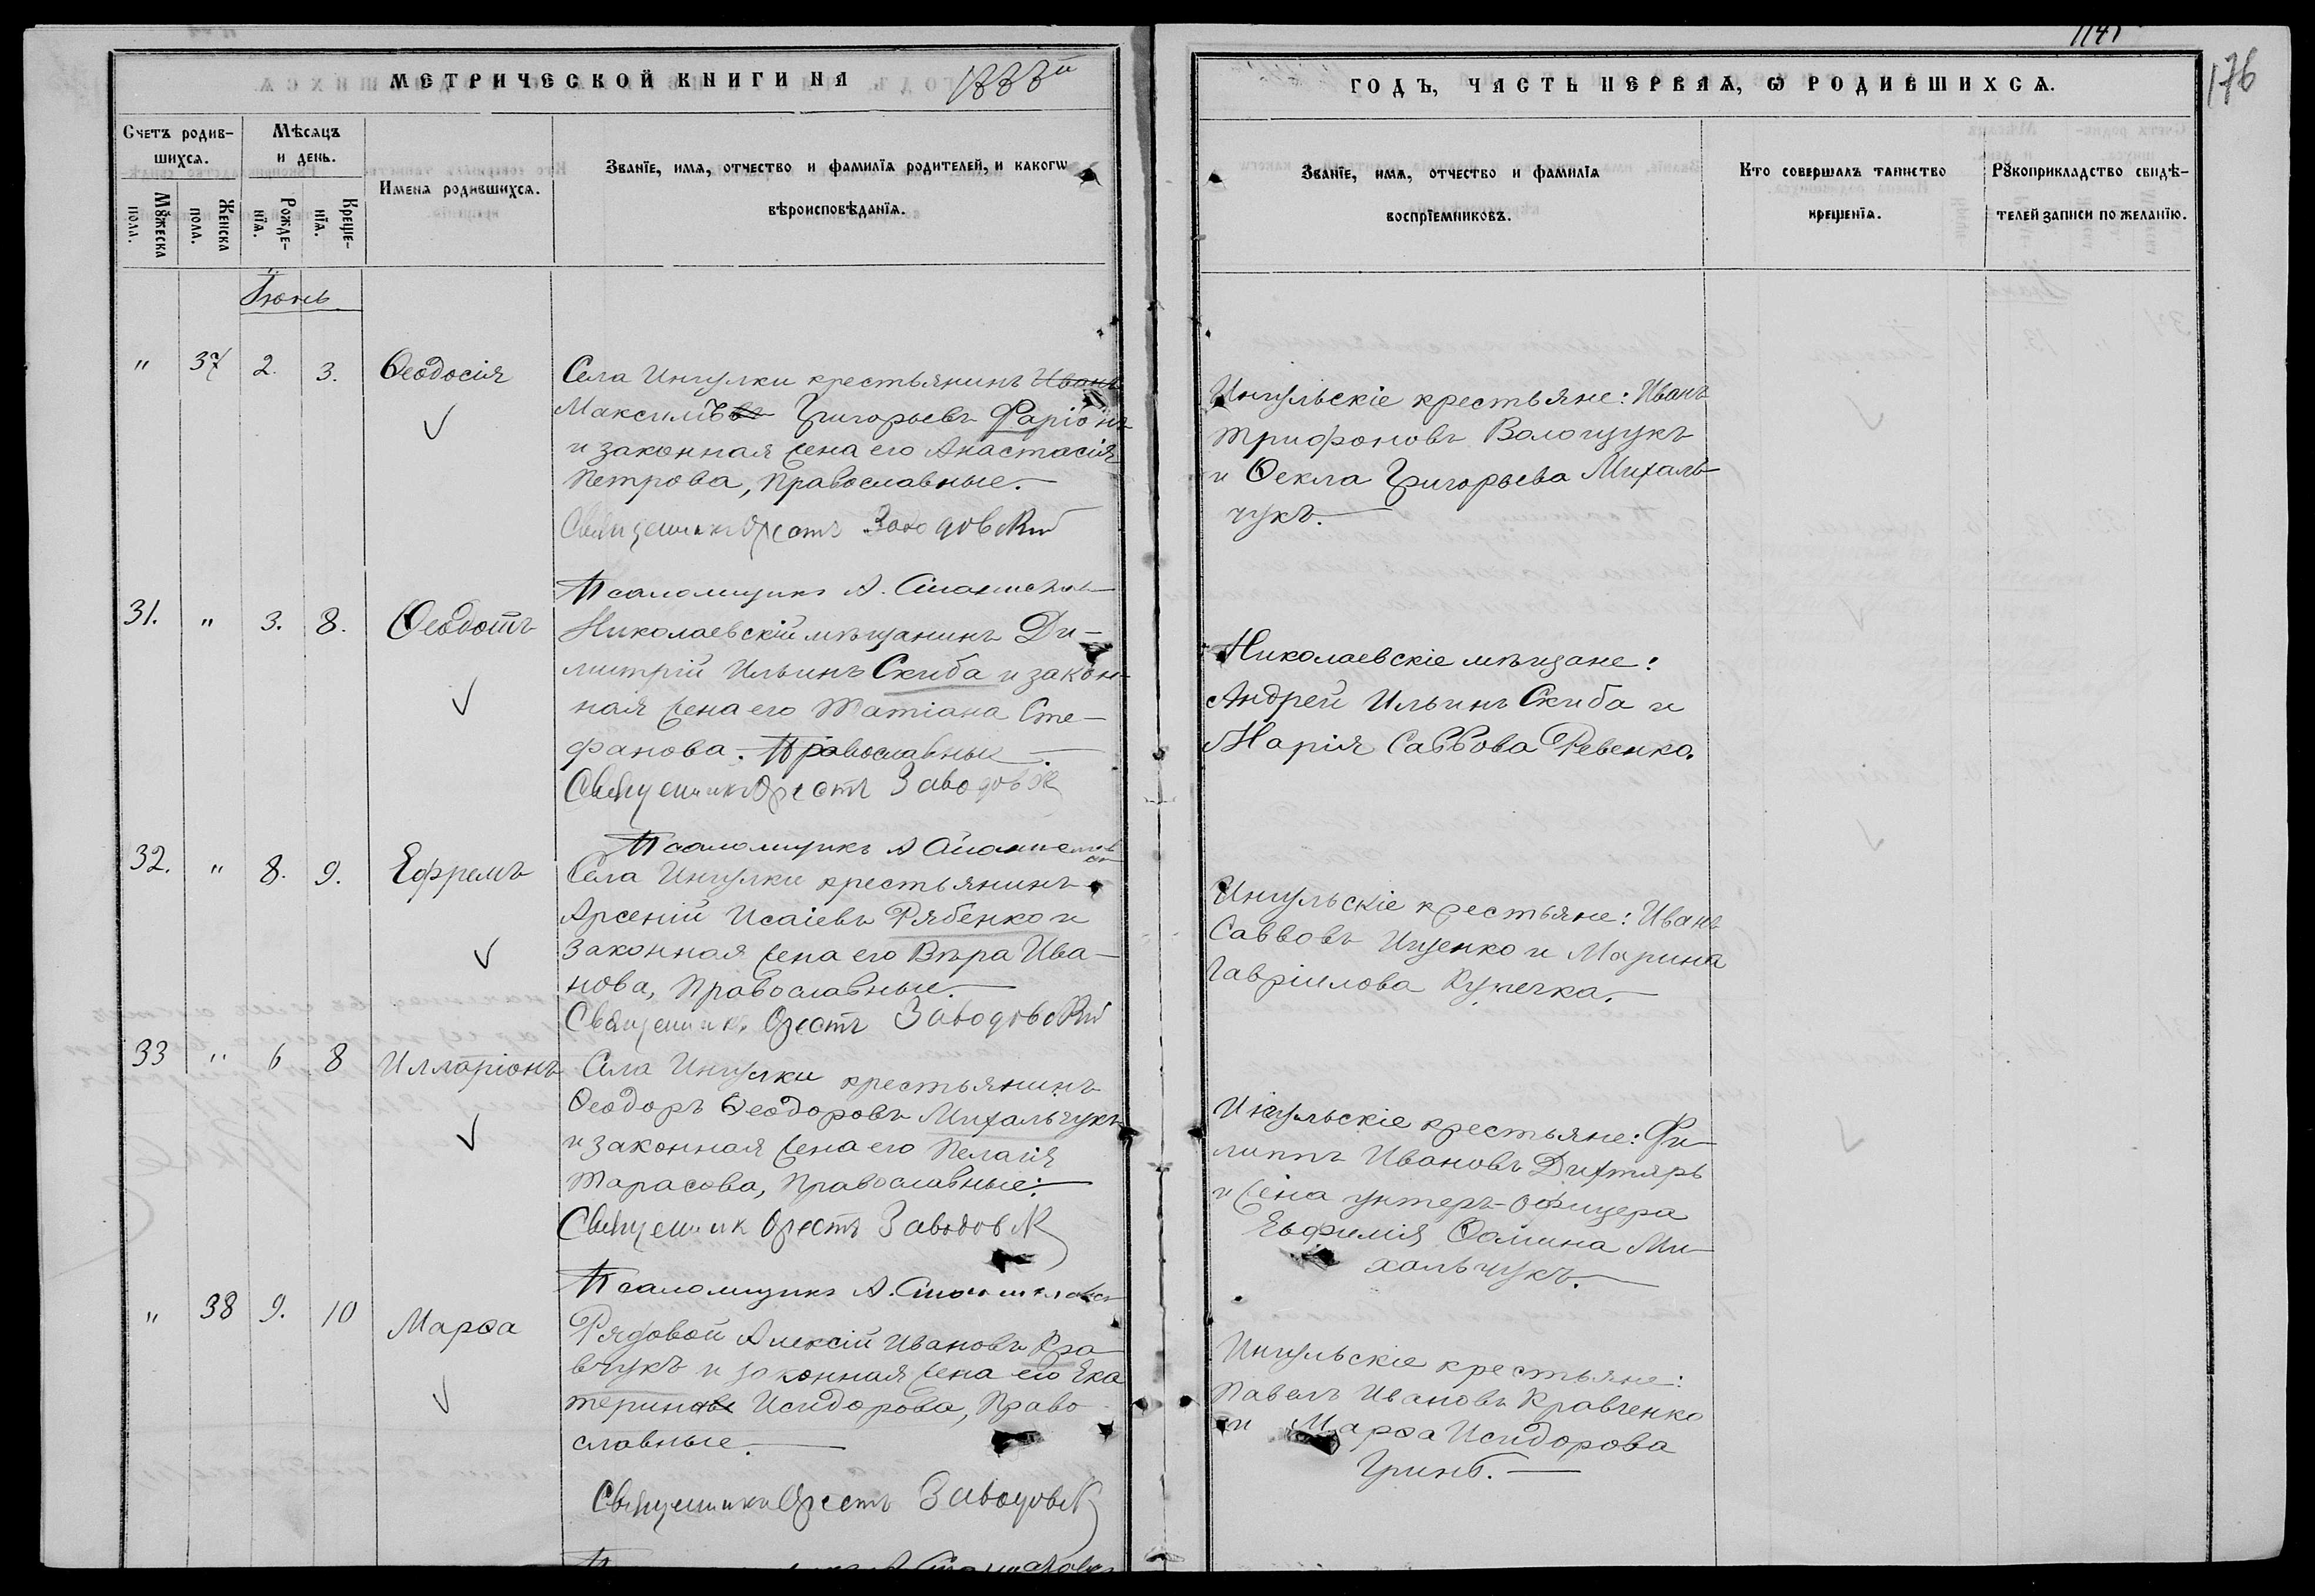 1141
176
МЕТРИЧЕСКОЙ КНИГИ НА 1888й
ГОДЪ, ЧАСТЬ ПЕРВАѦ, Ѡ РОДИВШИХСѦ.
Счетъ родив-
шихсѧ.
Мѣсѧцъ
и день.
Мꙋжеска
пола.
Женска
пола.
Рожде-
нїѧ.
Креще-
нїѧ.
Имена родившихсѧ.
Званїе, имѧ, отчество и фамилїѧ родителей, и какогѡ
вѣроисповѣданїѧ.
Званїе, имѧ, отчество и фамилїѧ
воспрїемниковъ.
Кто совершалъ таинство
крещенїѧ.
Рꙋкоприкладство свидѣ-
телей записи по желанїю.
Іюнь
" 37 2. 3. Ѳеодосія
Села Ингулки крестьянинъ Иванъ
Максимъ Григорьевъ Фаріонъ
и законная жена его Анастасія
Петрова, Православные.
Священникъ Орестъ Заводовскій
Псаломщикъ А.
Ингульскіе крестьяне: Иванъ
Трифоновъ Волощукъ
и Ѳекла Григорьева Михаль-
чукъ.
31. " 3. 8. Ѳеодотъ
Николаевскій мѣщанинъ Ди-
митрій Ильинъ Скиба и закон-
ная жена его Татіана Сте-
фанова. Православные.
Священникъ Орестъ Заводовск
Псаломщикъ А
Николаевскіе мѣщане:
Андрей Ильинъ Скиба и
Марія Саввова Ревенко.
32. " 8. 9. Ефремъ
Села Ингулки крестьянинъ
Арсеній Исаіевъ Рябенко и
законная жена его Вѣра Ива-
нова, Православные.
Священникъ Орестъ Заводовскій
Ингульскіе крестьяне: Иванъ
Саввовъ Ищенко и Марина
Гавріилова
33 " 6 8 Илларіонъ
Села Ингулки крестьянинъ
Ѳеодоръ Ѳеодоровъ Михальчукъ
и законная жена его Пелагія
Тарасова, Православные.
Священник Орестъ Заводовск
Псаломщикъ А.
Ингульскіе крестьяне: Фи-
липпъ Ивановъ Дихтярь
и жена унтеръ-офицера
Евфимія Ѳомина Ми-
хальчукъ.
" 38 9. 10 Марѳа
Рядовой Алексій Ивановъ Кра-
вчукъ и законная жена его Ека
терина Исидорова, Право
славные.
Священникъ Орестъ Заводовск
Ингульскіе крестьяне:
Павелъ Ивановъ Кравченко
и Марѳа Исидорова
Гринь.